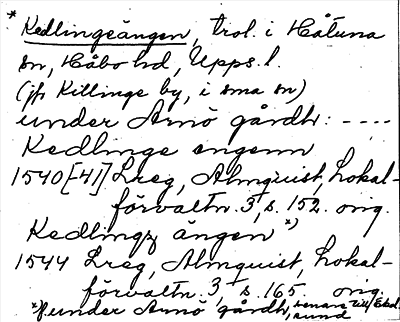 * Kedlingeängen, trol. i Håtuna
sn, Håbo hd, Upps. l.
(jfr Killinge by, i sma sn)
under Arnö gårdh: ----
Kedlinge engenn
1540[-41] Lreg, Almquist, Lokal-
förvaltn. 3, s. 152. orig.
Kedlingz ängen *)
1544 Lreg, Almquist, Lokal-
förvaltn. 3, s. 165. orig.
*) under Arnö gårdh, senare till Ekol-
sund